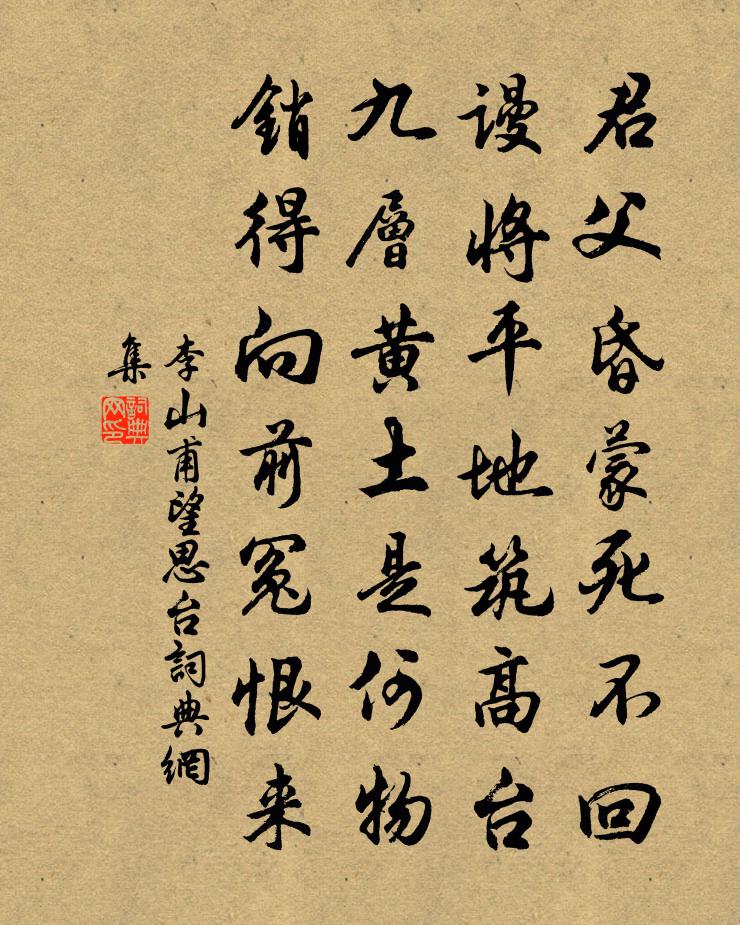 君父昏蒙死不回
谩将平地筑高台
九層黄土是何物
銷得向前冤恨来
李山甫望思台詞典網
集
詞典
网印